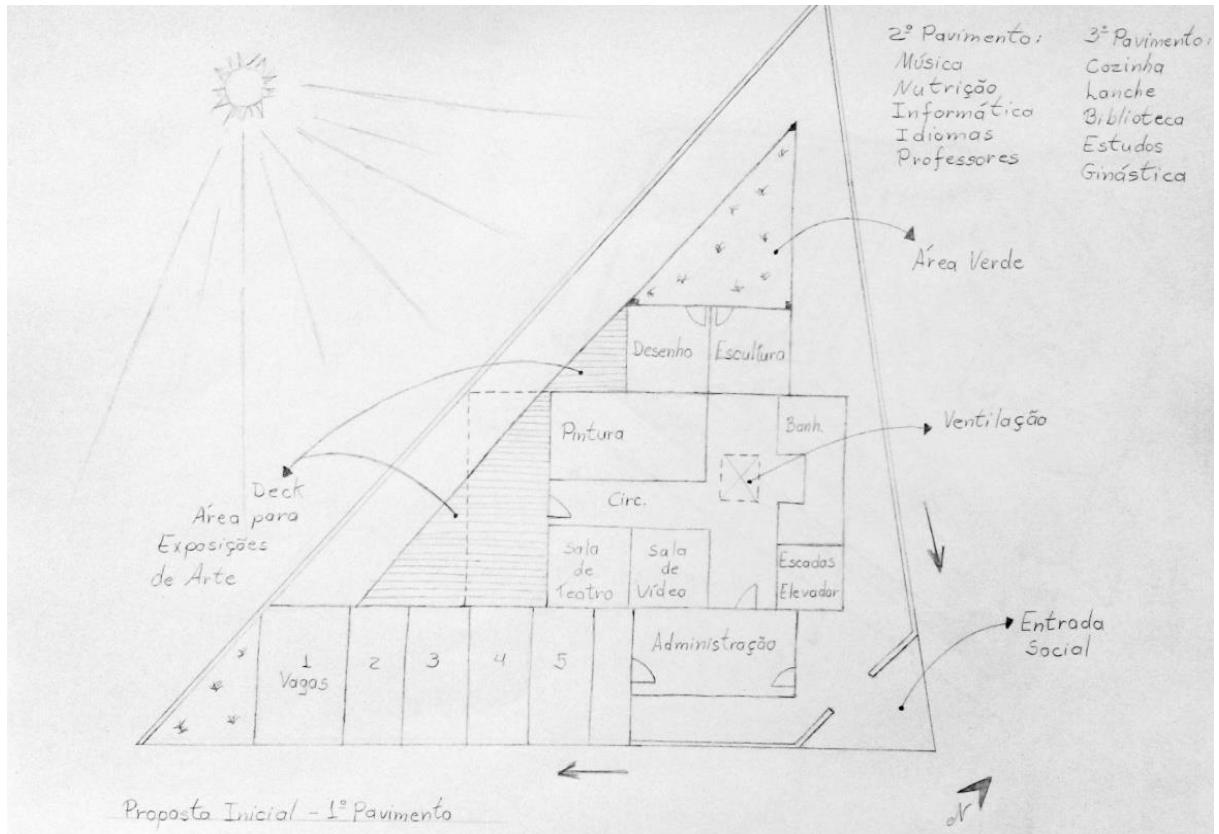 2º Pavimento:
Música
Nutrição
Informática
Idiomas
Professores
3º Pavimento:
Cozinha
Lanche
Biblioteca
Estudos
Ginástica
Área Verde
Desenho
Escultura
Pintura
Banh.
Ventilação
Circ.
Deck
Área para
Exposições
de Arte
Sala
de
Teatro
Sala
de
Vídeo
Escadas
Elevador
Entrada
Social
Administração
1
Vagas
2
3
4
5
N
Proposta Inicial - 1º Pavimento